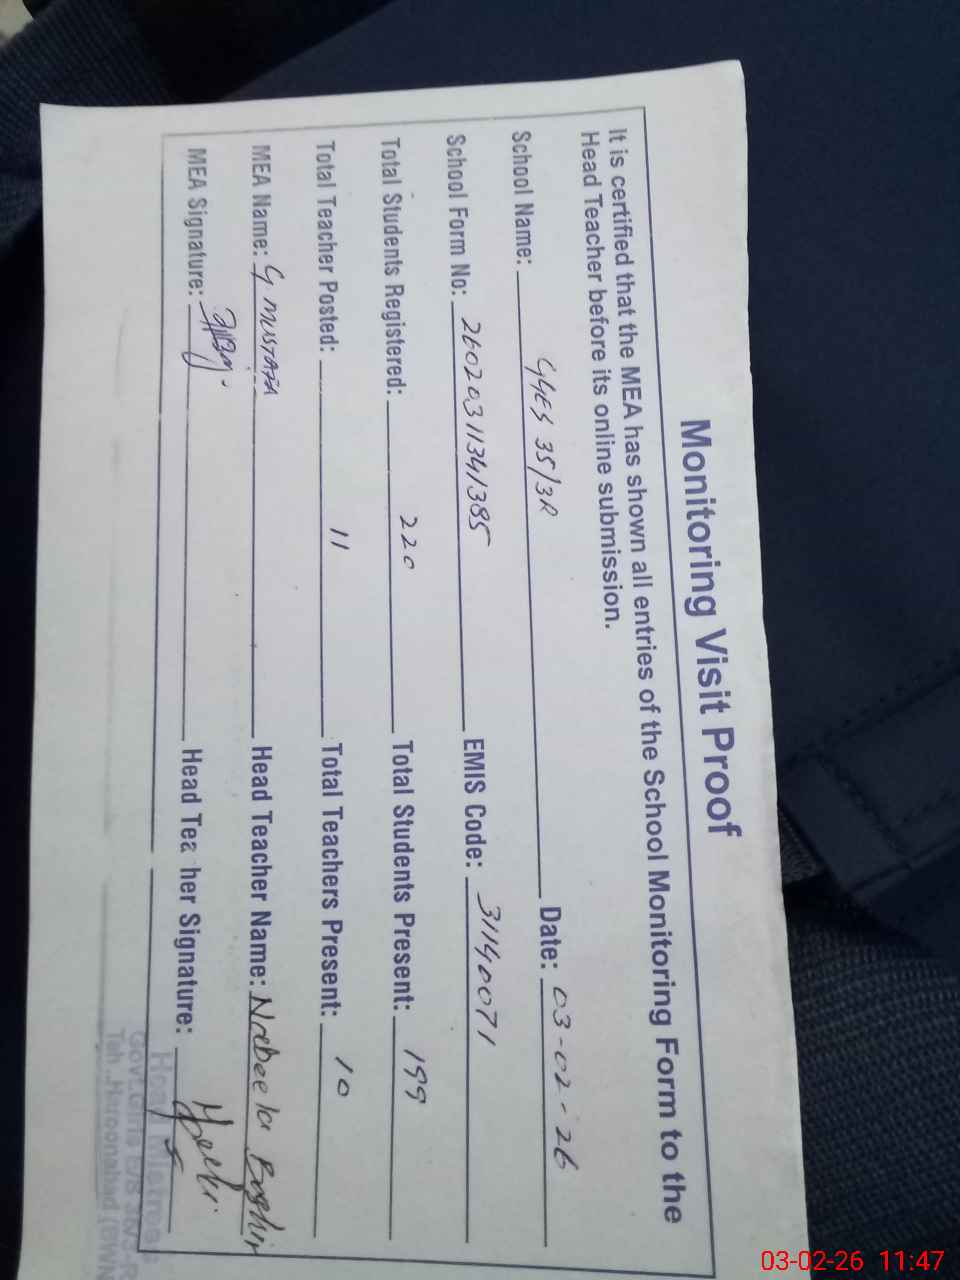 Monitoring Visit Proof
It is certified that the MEA has shown all entries of the School Monitoring Form to the
Head Teacher before its online submission.
School Name: GGES 35/3R Date: 03-02-26
School Form No: 26020311341385 EMIS Code: 31140071
Total Students Registered: 220 Total Students Present: 199
Total Teacher Posted: 11 Total Teachers Present: 10
MEA Name: G MUSTAFA Head Teacher Name: Nabeela Bashir
MEA Signature: Head Tea her Signature:
Head Mistress
Govt. Girls E/S 35/3-R
Teh. Haroonabad (BWN
03-02-26 11:47